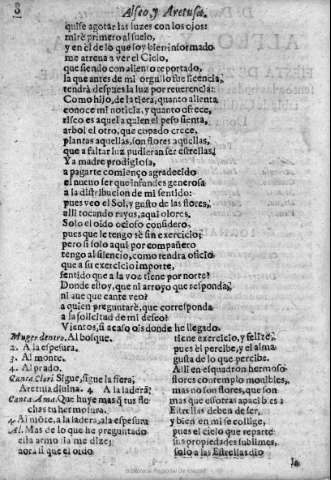 8
Alfeo, y Aretusa.
quise agotar las luzes con los ojos:
mirè primero al suelo,
y en el de lo que soy bien informado
me atreua a ver el Cielo,
que siendo con aliento reportado,
la que antes de mi orgullo fue licencia,
tendrá despues la luz por reuerencia:
Como hijo, de la tierra, quanto alienta
conoce mi noticia, y quanto ofrece,
risco es aquel a quien el peso sienta,
arbol el otro, que copado crece,
plantas aquellas, son flores aquellas,
que a faltar luz pudieran ser estrellas.
Ya madre prodigiosa,
a pagarte comienço agradecido
el nueuo ser que infundes generosa
a la distribucion de mi sentido:
pues veo el Sol, y gusto de las flores,
alli tocando rayos, aqui olores.
Solo el oido ocioso considero,
pues que le tengo sè sin exercicio;
pero si solo aqui por compañero
tengo al silencio, como tendrà oficio
que a su exercicio importe,
sentido que a la voz tiene por norte?
Donde estoy, que ni arroyo que responda,
ni aue que cante veo?
a quien preguntarè, que corresponda
a la solicitud de mi deseo?
Vientos, si acaso ois donde he llegado.
Muger dentro. Al bosque.
2. A la espesura.
3. Al monte.
4. Al prado.
Canta Clori Sigue, sigue la fiera,
Aretusa diuina. 4. A la ladera:
Canta Ama. Que huye mas q̃ tus fle
chas tu hermosura.
4. Al môte, a la ladera, a la espesura
Al. Mas de lo que he preguntado
esta armonia me dize;
aora si que el oido
tiene exercicio, y felize,
pues èl percibe, y el alma
gusta de lo que percibe.
Alli en esquadron hermoso
flores contemplo mouibles,
mas no son flores, que son
mas que essotras apacibles:
Estrellas deben de ser,
y bien en mi se colige,
pues el cielo que reparte
sus propiedades sublimes,
solo a las Estrellas dio
la
Biblioteca Regional de Madrid